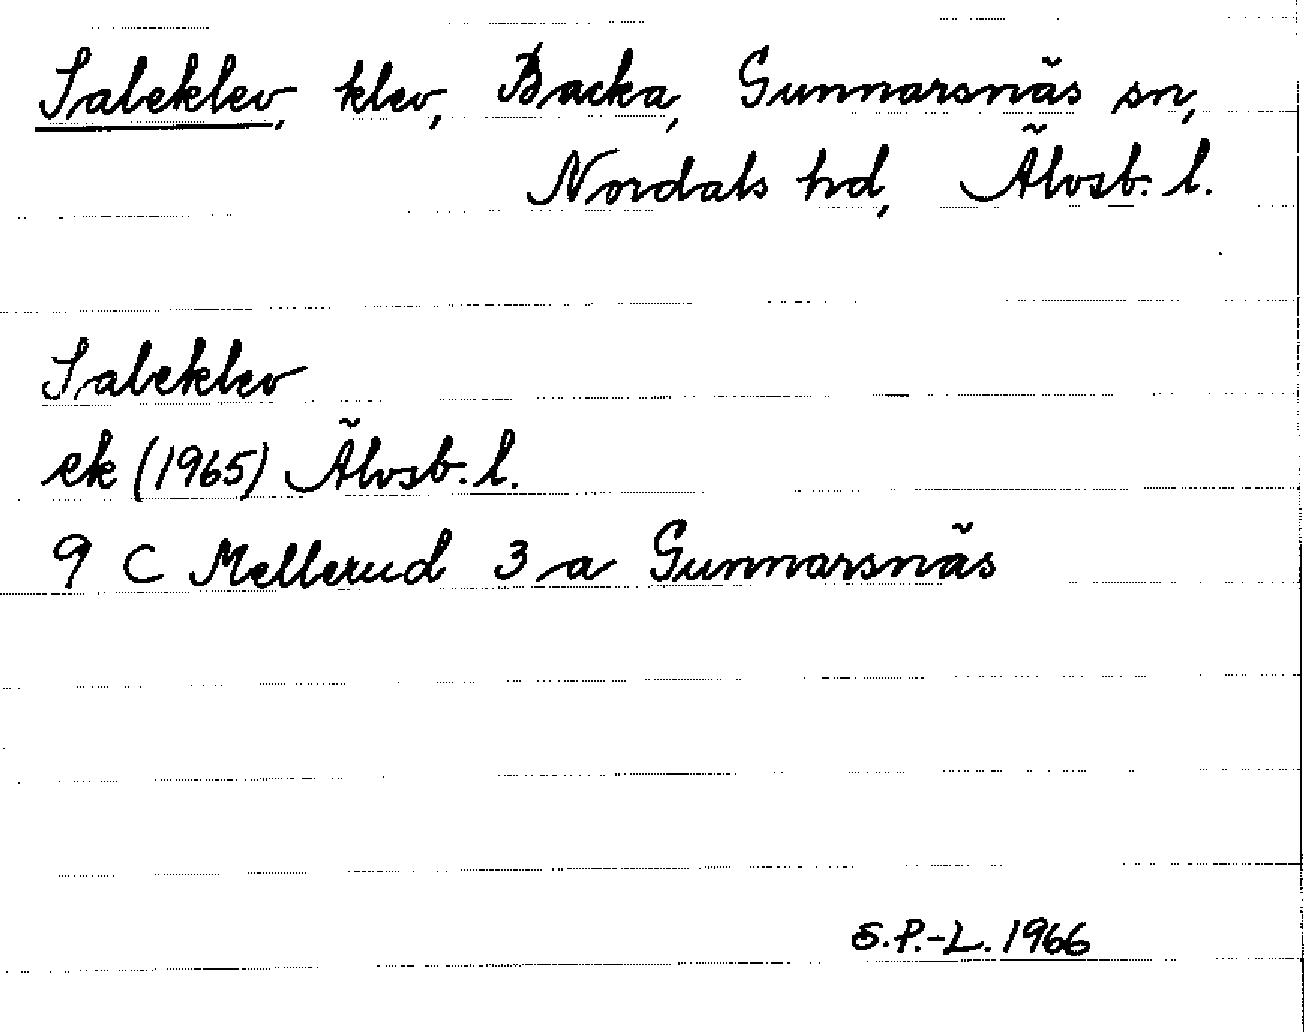 Saleklev, klev, Backa, Gunnarsnäs sn,
Nordals hd, Älvsb. l.
Saleklev
ek (1965) Älvsb. l.
9 C Mellerud 3 a Gunnarsnäs
S.P.-L. 1966